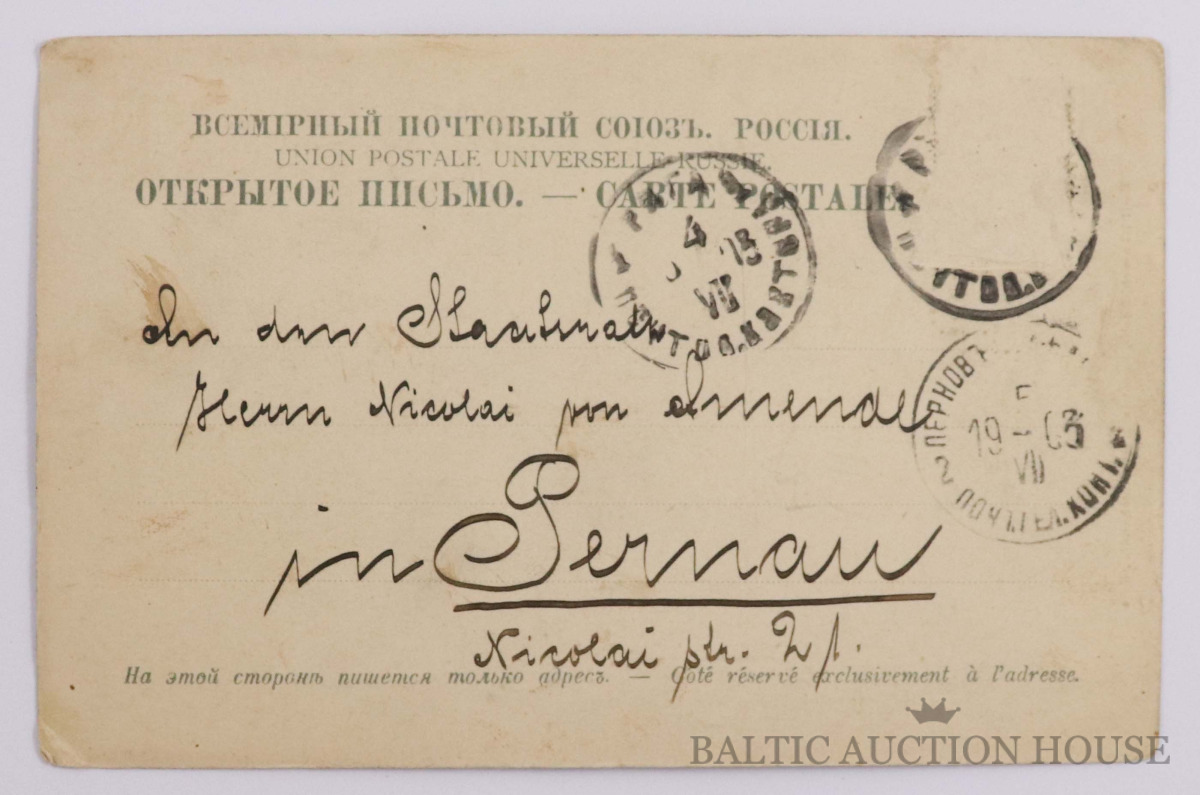 ВСЕМІРНЫЙ ПОЧТОВЫЙ СОЮЗЪ. РОССІЯ.
UNION POSTALE UNIVERSELLE. RUSSIE.
ОТКРЫТОЕ ПИСЬМО. — CARTE POSTALE.
РИГА
4
VII
ПЕРНОВЪ
5
19 – 03
VII
2 ПОЧТ. ТЕЛ. КОНТ.
An den
Herrn Nicolai von Amende
in Pernau
Nicolai str. 21.
На этой сторонѣ пишется только адресъ. — Coté réservé exclusivement à l'adresse.
BALTIC AUCTION HOUSE